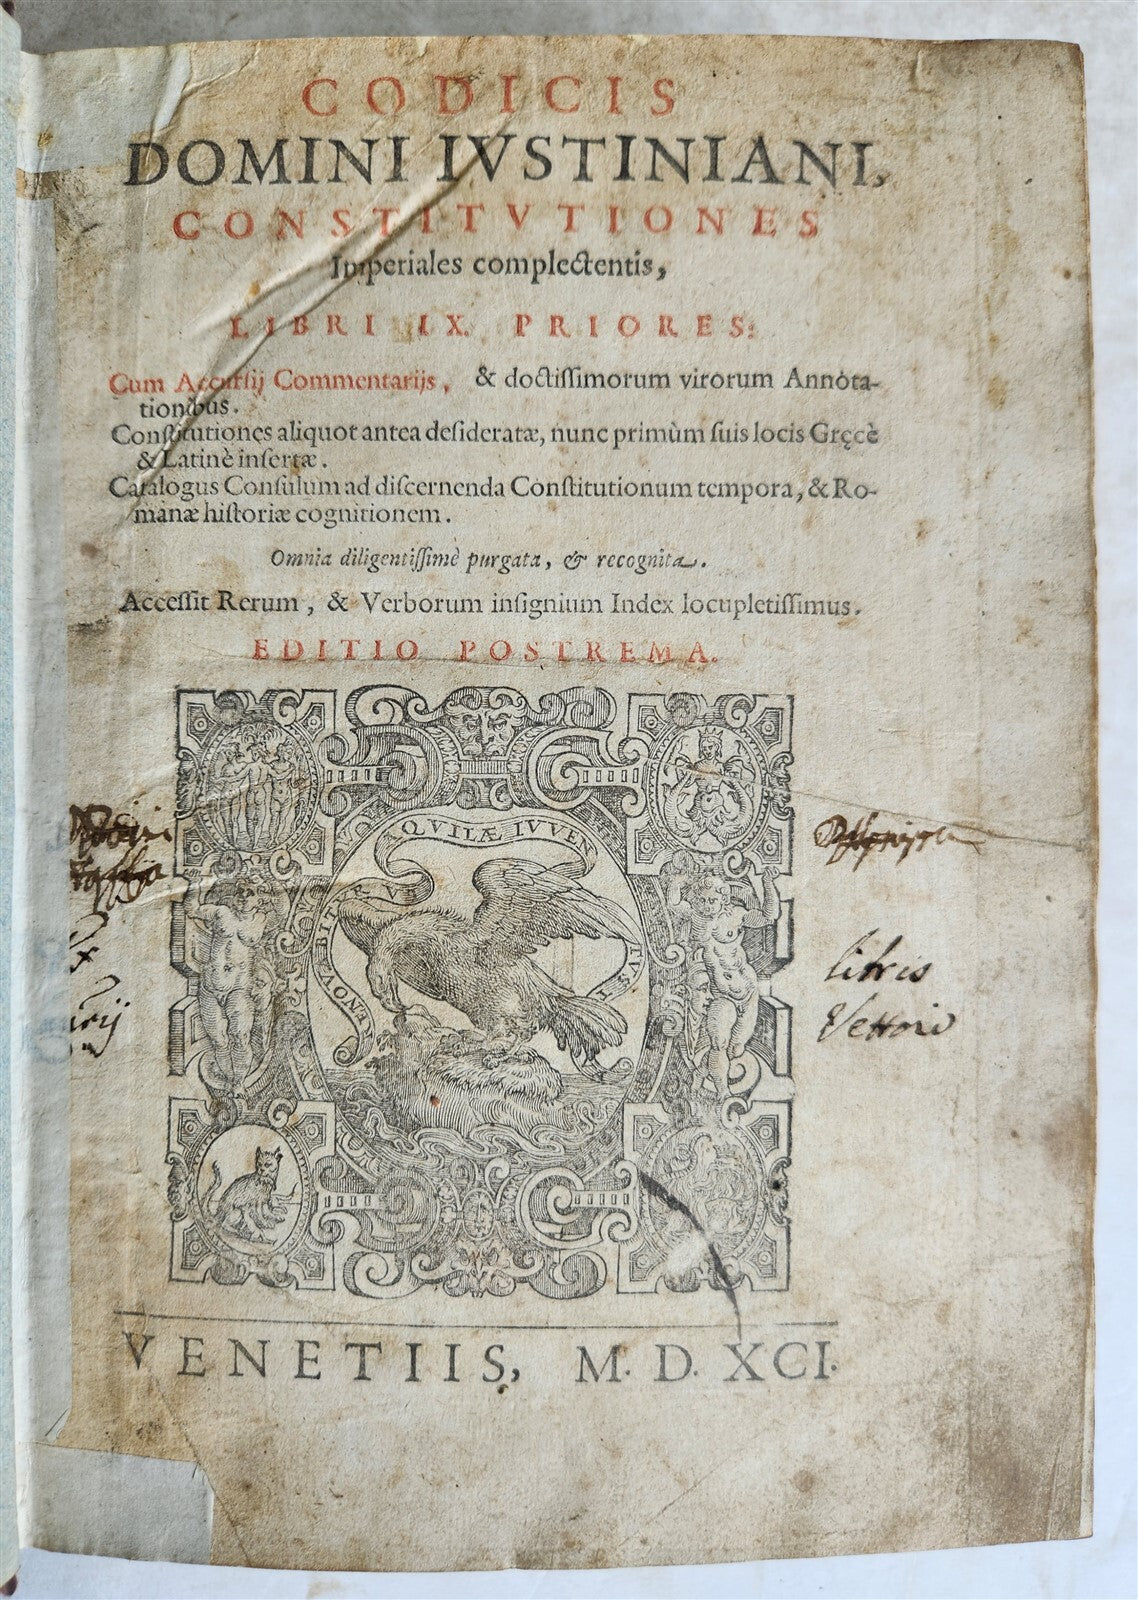 CODICIS
DOMINI IVSTINIANI,
CONSTITVTIONES
Imperiales complectentis,
LIBRI IX. PRIORES:
Cum Accursij Commentarijs, & doctissimorum virorum Annòta-
tionibus.
Constitutiones aliquot antea desideratæ, nunc primùm suis locis Gręcè
& Latinè insertæ.
Catalogus Consulum ad discernenda Constitutionum tempora, & Ro-
manæ historiæ cognitionem.
Omnia diligentissimè purgata, & recognita.
Accessit Rerum, & Verborum insignium Index locupletissimus.
EDITIO POSTREMA.
RENOVABITVR VT AQVILÆ IVVEN
libris
Vettori
VENETIIS, M. D. XCI.